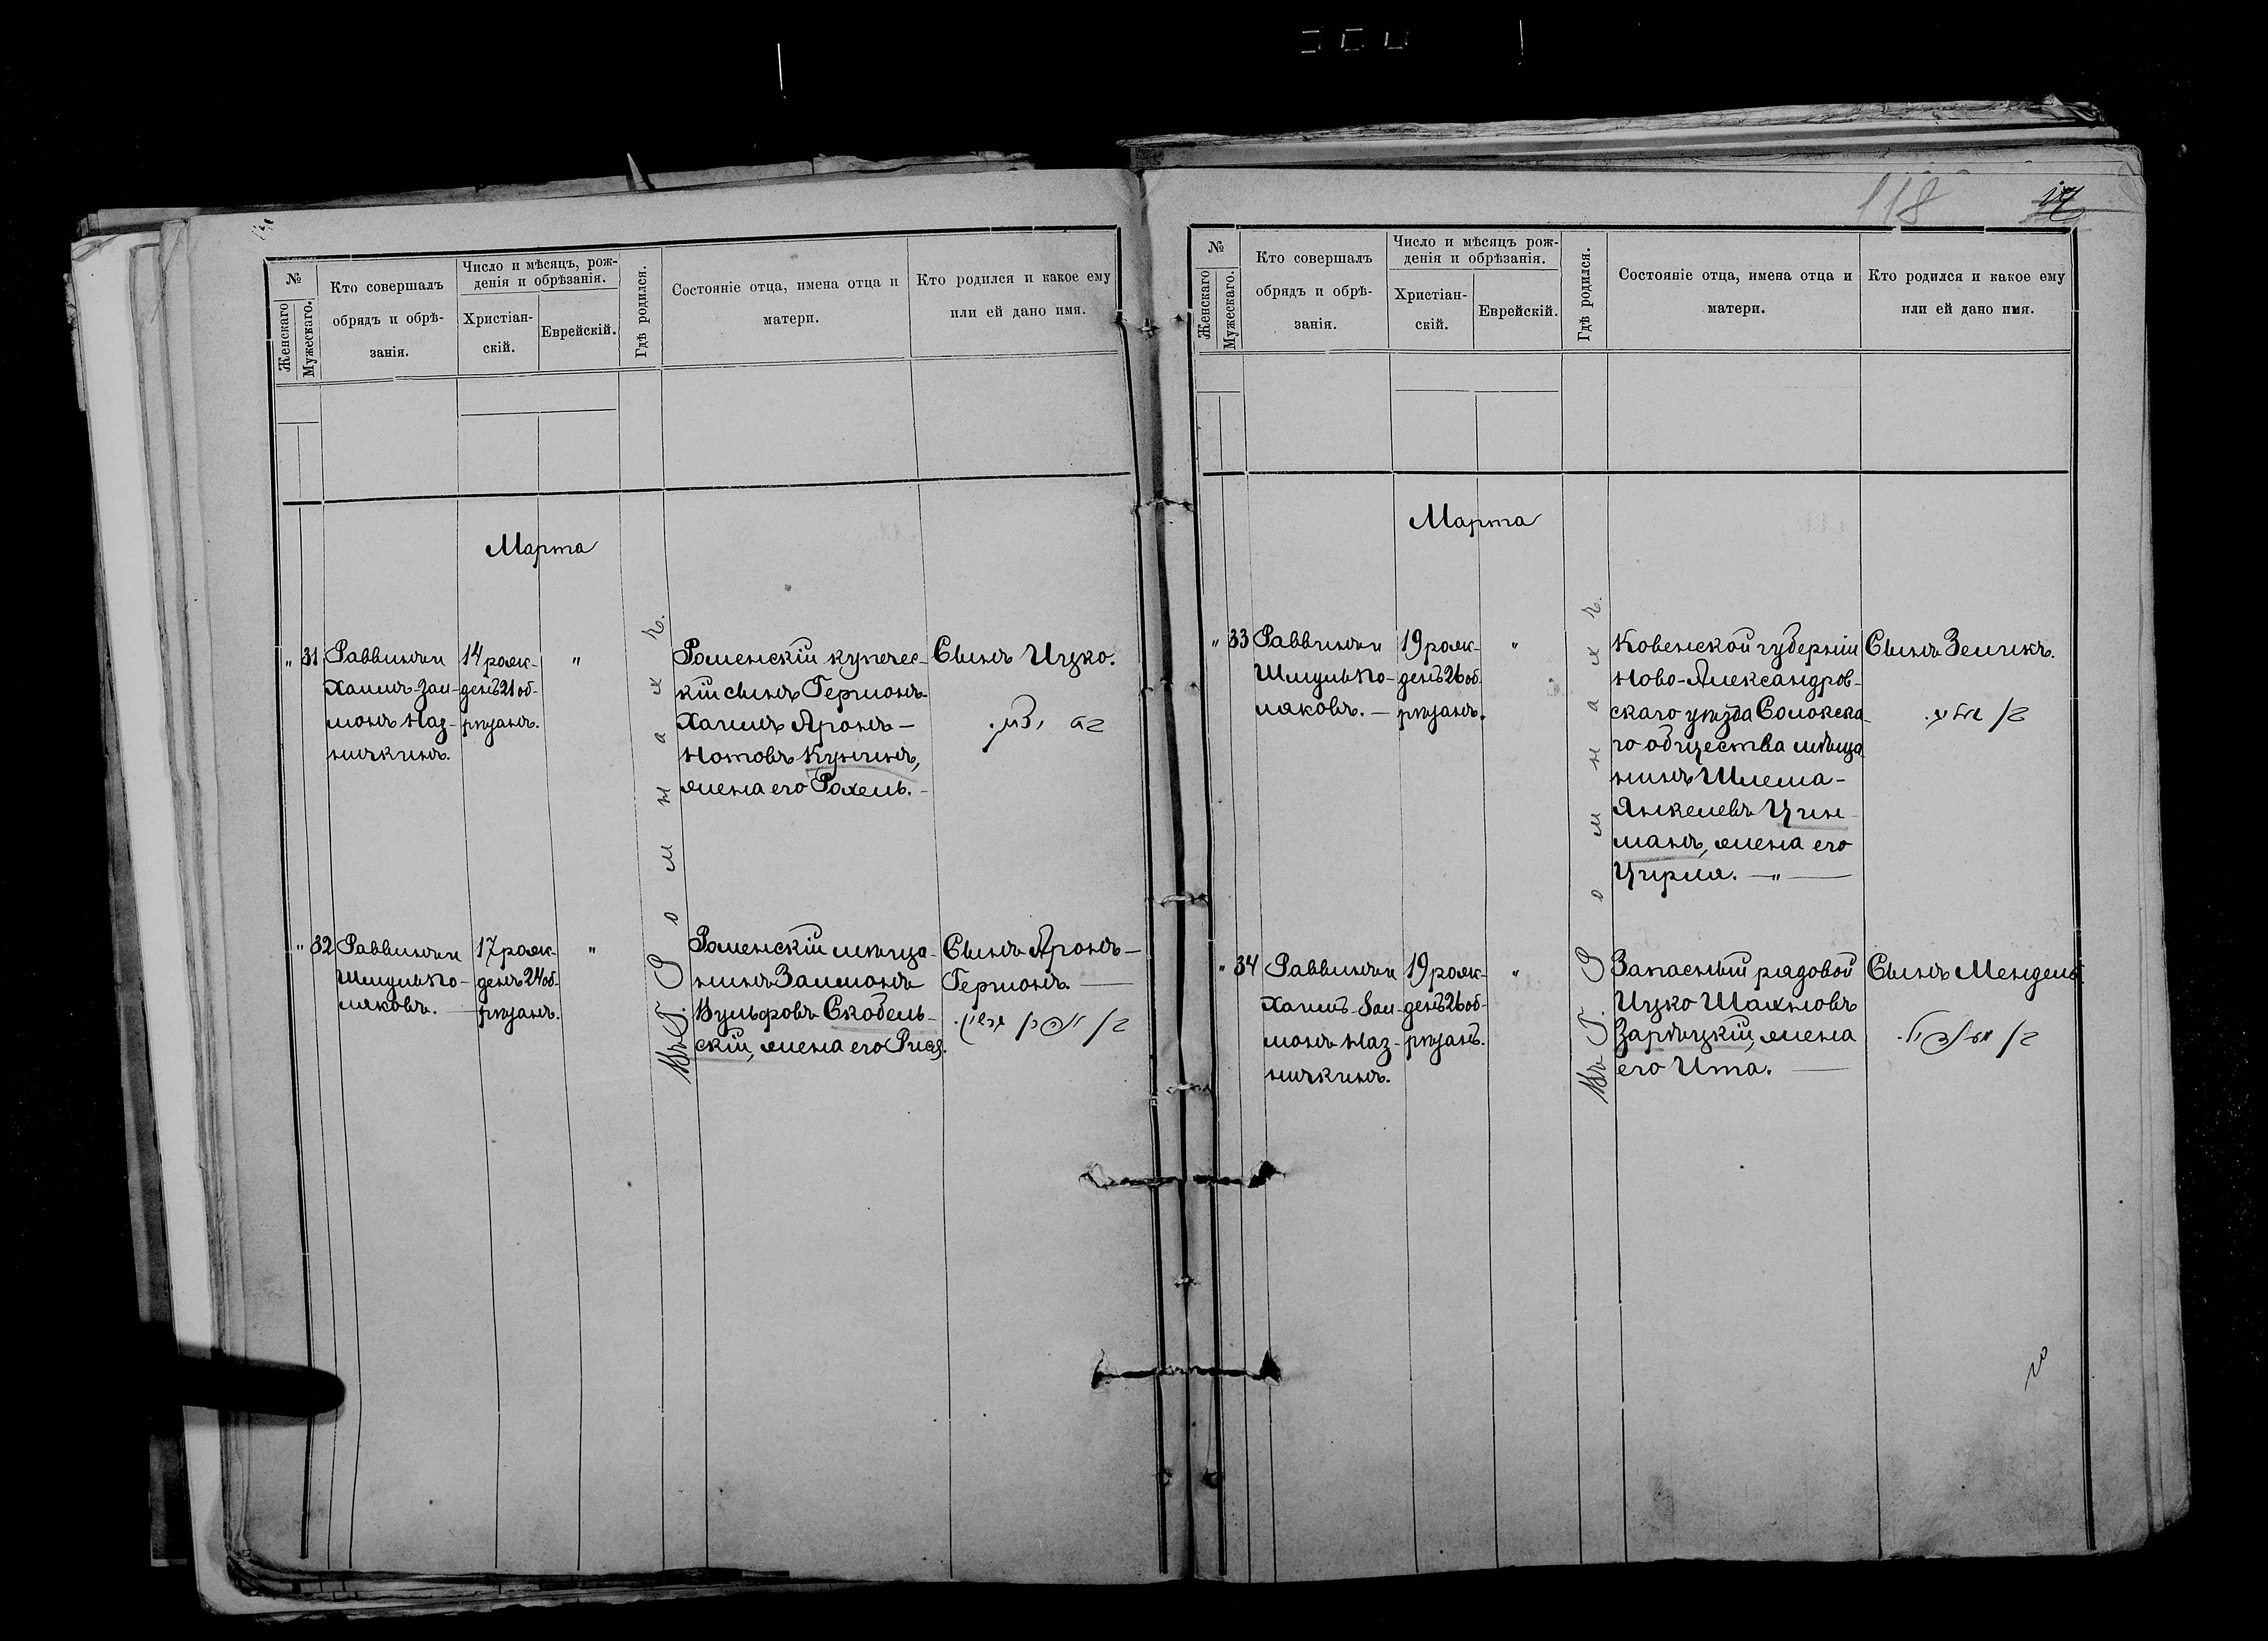 №
Женскаго
Мужескаго.
Кто совершалъ
обрядъ и обрѣ-
занія.
Число и мѣсяцъ, рож-
денія и обрѣзанія.
Христіан-
скій.
Еврейскій.
Гдѣ родился.
Состояніе отца, имена отца и
матери.
Кто родился и какое ему
или ей дано имя.
Марта
" 31
Раввинъ и
Хаимъ-Зал-
монъ Наз-
ничкинъ.
14 рож-
денъ 21 об-
рѣзанъ.
"
Въ Г. Ромнахъ.
Роменскій купечес-
кій сынъ Гершонъ-
Хаимъ Аронъ-
Нотовъ Кунинъ,
жена его Рохель. -
Сынъ Ицко.
" 32
Раввинъ и
Шмуль По-
ляковъ. —
17 рож-
денъ 24 об-
рѣзанъ.
"
Роменскій мѣща-
нинъ Залмонъ
Вульфовъ Скобель-
скій, жена его Рися.
Сынъ Аронъ-
Гершонъ. —
118
17
№
Женскаго
Мужескаго.
Кто совершалъ
обрядъ и обрѣ-
занія.
Число и мѣсяцъ рож-
денія и обрѣзанія.
Христіан-
скій.
Еврейскій.
Гдѣ родился.
Состояніе отца, имена отца и
матери.
Кто родился и какое ему
или ей дано имя.
Марта
" 33
Раввинъ и
Шмуль По-
ляковъ. —
19 рож-
денъ 26 об-
рѣзанъ.
"
Въ Г. Ромнахъ.
Ковенской губерніи
Ново-Александров-
скаго уѣзда Солокска-
го общества мѣща-
нинъ Шлема-
Янкелевъ Цин-
манъ, жена его
Цирля. — " —
Сынъ Зеликъ.
" 34
Раввинъ и
Хаимъ-Зал-
монъ Наз-
ничкинъ.
19 рож-
денъ 26 об-
рѣзанъ.
"
Запасный рядовой
Ицко Шахновъ
Зарѣцкій, жена
его Ита. —
Сынъ Мендель.